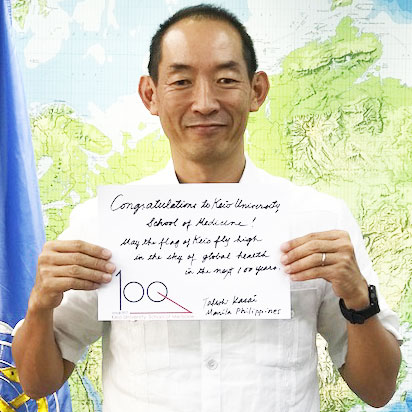 Congratulations to Keio University
School of Medicine!
May the flag of Keio fly high
in the sky of global health
in the next 100 years.
100
Takeshi Kasai
Manila Philippines